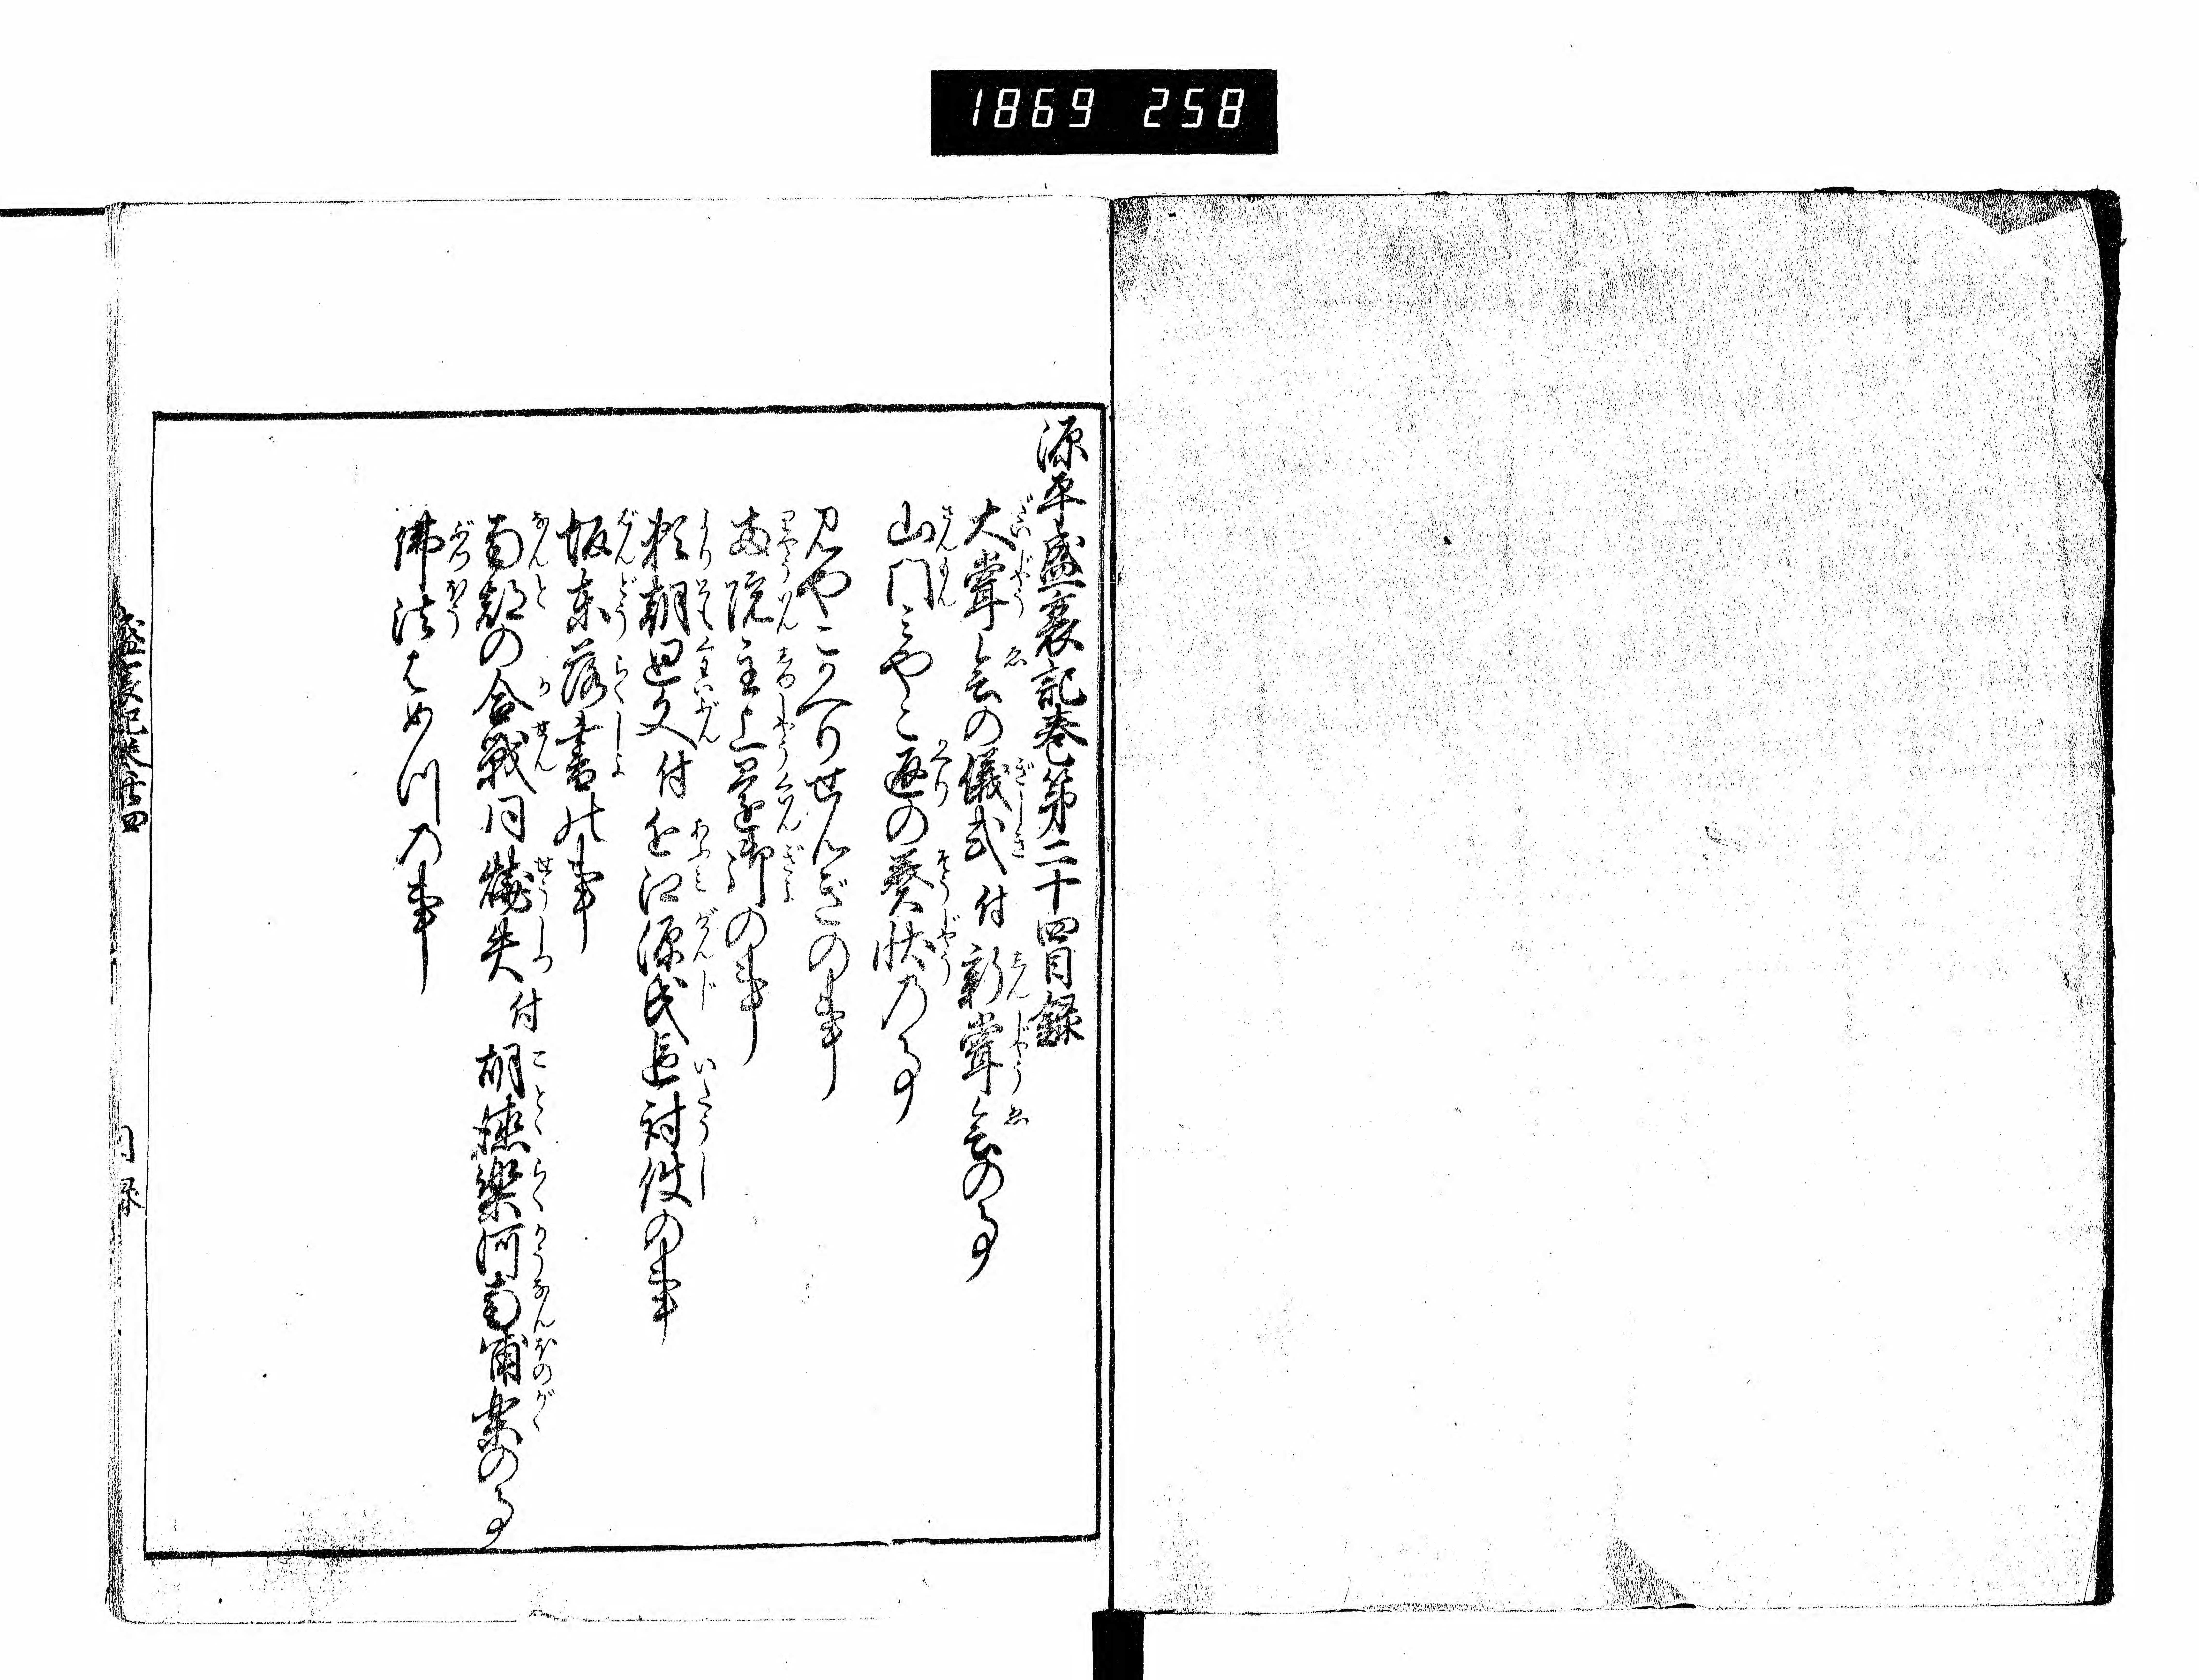 1869 258
源平盛衰記巻第二十四目録
大嘗会の儀式付新嘗会の事
山門みやこ返の奏状乃事
みやこかへりせんぎの事
両院主上還御の事
頼朝廻文付近江源氏追討使の事
坂東落書の事
南都の合戦同焼失付胡徳楽河南浦楽の事
佛法はめつ乃事
盛衰記巻廿四
目録